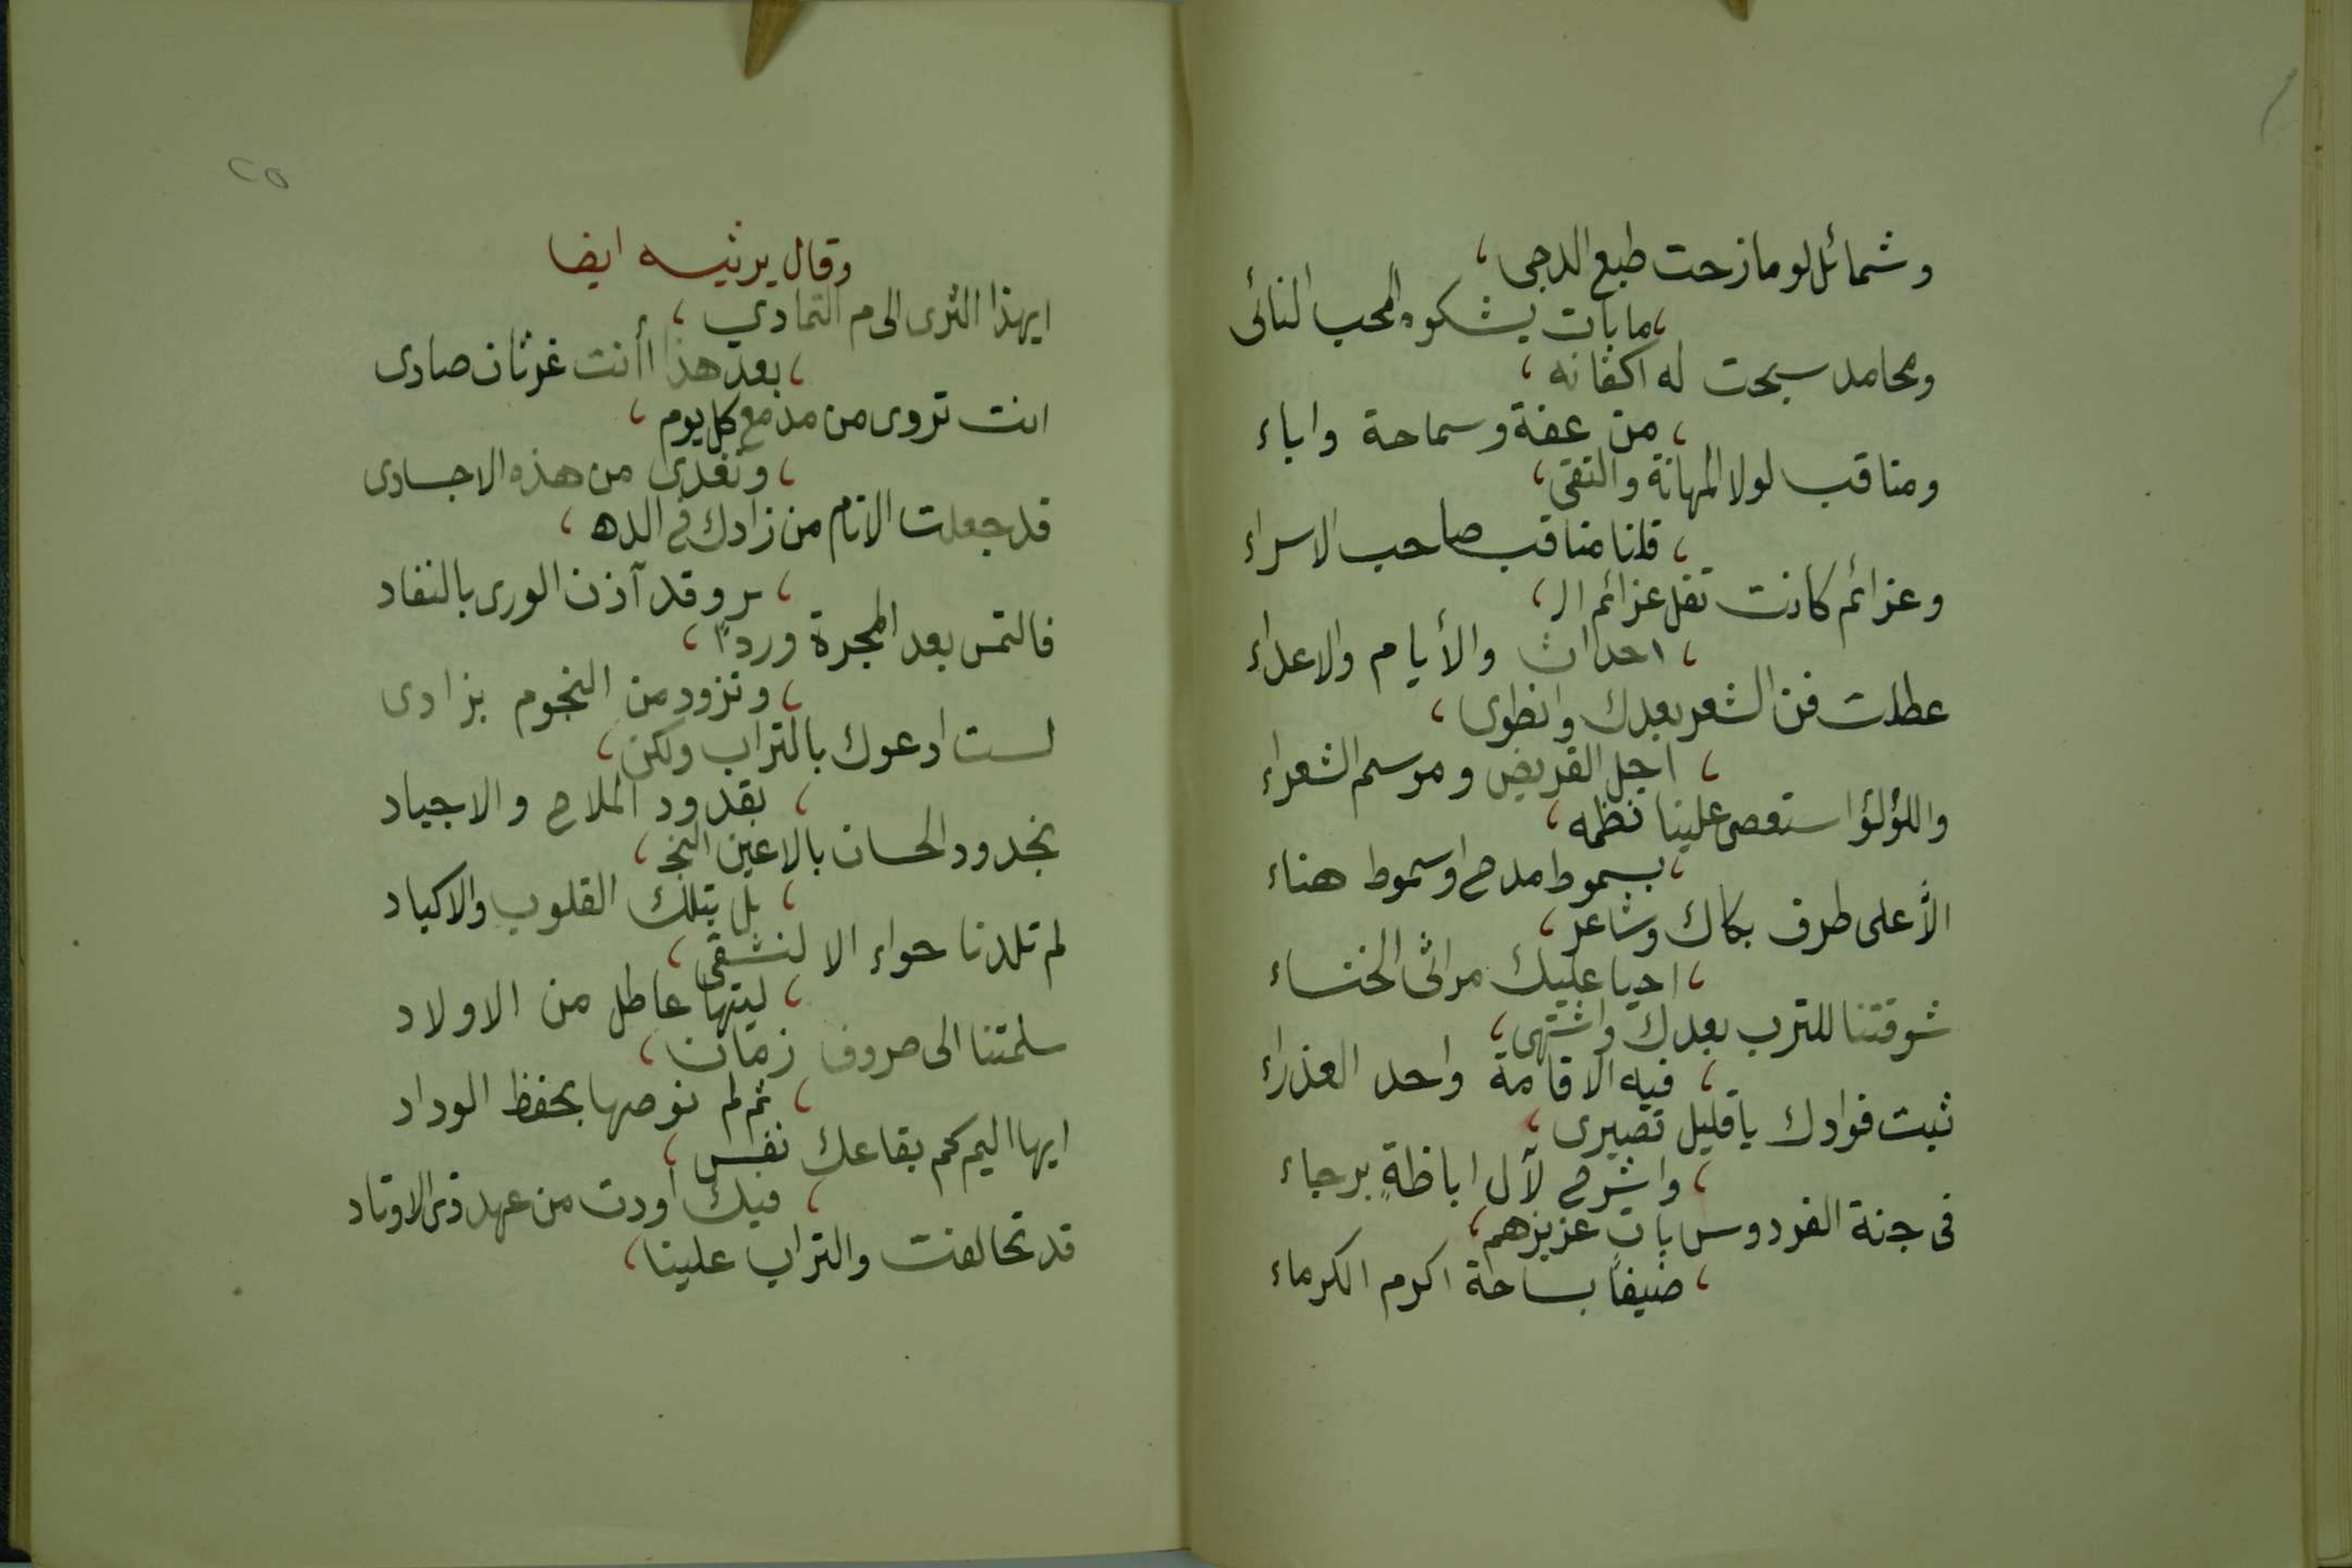 وشمائل لو مازحت طبع الدجى،
، ما بات يشكوه المحب النائى
ومحامد سبحت له اكفانه،
، من عفة وسماحة واباء
ومناقب لولا المهانة والتقى،
، قلنا مناقب صاحب الاسراء
وعزائم كانت تفل عزائم الـ،
، احداث والأيام والاعداء
عطلت فن الشعر بعدك وانطوى،
، اجل القريض ومرسم الشعراء
واللؤلؤ استعصى علينا نظمه،
، بسموط مدح او سموط هناء
الأعلى طرف بكاك وشاعر،
، احيا عليك مراثى الخنساء
شوقتنا للترب بعدك واشتهى،
، فيه الاقامة واحد العذراء
ثبت فوادك يا قليل تصبرى،
، واشرح لآل اباظةٍ برجاء
فى جنة الفردوس بات عزيزهم،
، ضيفاً بساحة اكرم الكرماء
٢٥
وقال يرثيه ايضا
ايهذا الثرى الى م التمادي،
، بعد هذا أأنت غرثان صادى
انت تروى من مدمع كل يوم،
، وتغدى من هذه الاجسادى
قد جعلت الانام من زادك فى الده،
، ر وقد آذن الورى بالنفاد
فالتمس بعد المجرة ورداً،
، وتزود من النجوم بزادى
لست ادعوك بالتراب ولكن،
، بقدود الملاح والاجياد
بخدود الحسان بالاعين النجـ،
، ل بتلك القلوب والاكباد
لم تلدنا حواء الا لنشقى،
، ليتها عاطل من الاولاد
سلمتنا الى صروف زمان،
، ثم لم توصها بحفظ الوداد
ايها اليم كم بقاعك نفس،
، فيك اودت من عهد ذى الاوتاد
قد تحالفت والتراب علينا،